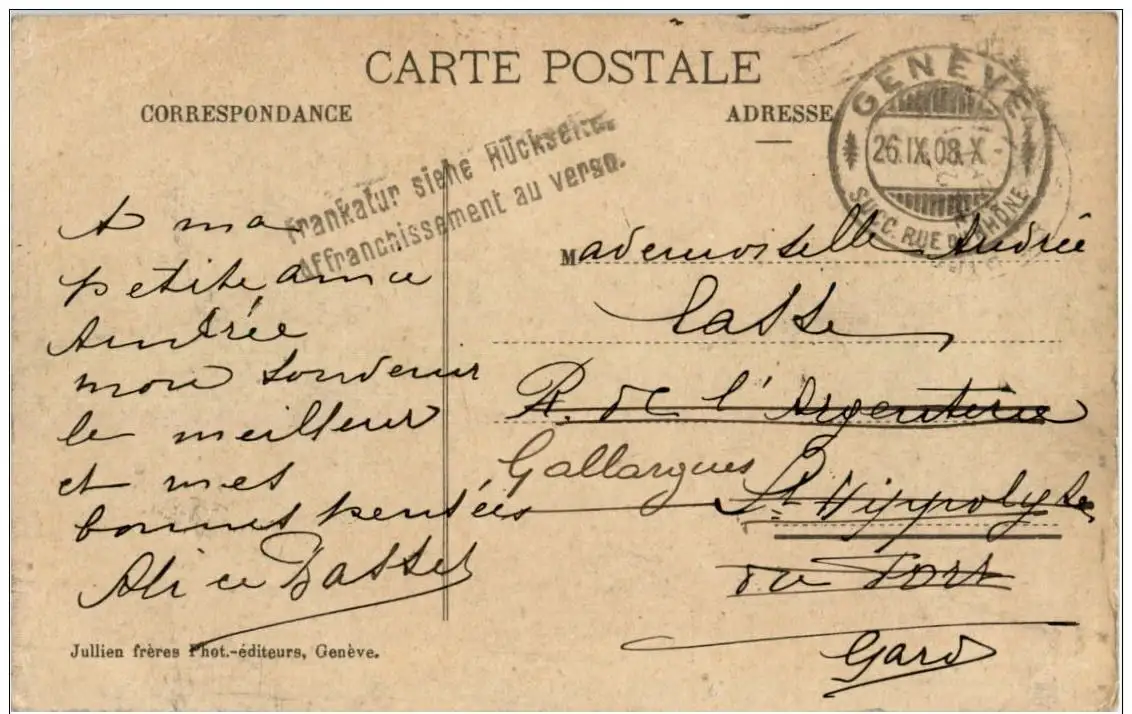 CARTE POSTALE
CORRESPONDANCE
ADRESSE
GENÈVE
26.IX.08.X
SUCC. RUE DU RHÔNE
Frankatur siehe Rückseite.
Affranchissement au verso.
A ma
petite amie
Andrée
mon souvenir
le meilleur
et mes
bonnes pensées
Alice Basset
Mademoiselle Andrée
Lasse
R. de l'Argenterie
Gallargues
St Hippolyte
du Fort
Gard
Jullien frères Phot.-éditeurs, Genève.